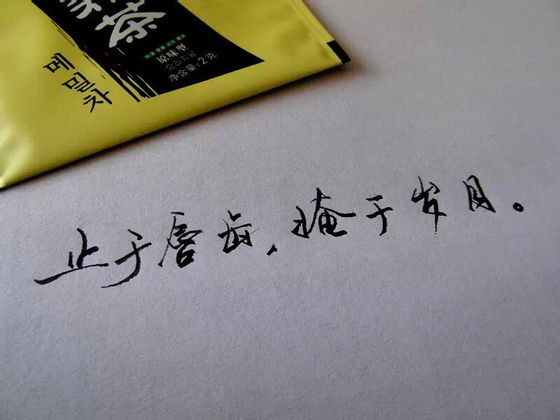 茶
메밀차
原味型
净含量:2克
止于唇齿,掩于岁月。